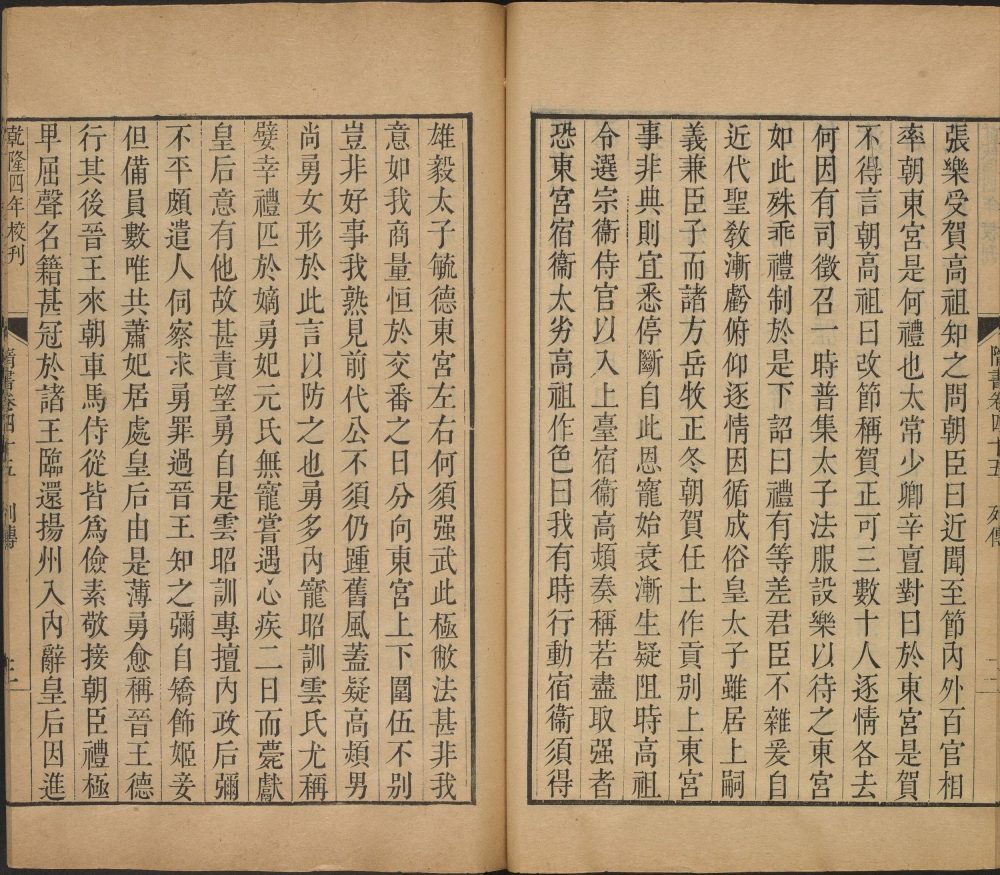 張樂受賀高祖知之問朝臣曰近聞至節內外百官相
率朝東宮是何禮也太常少卿辛亶對曰於東宮是賀
不得言朝高祖曰改節稱賀正可三數十人逐情各去
何因有司徵召一時普集太子法服設樂以待之東宮
如此殊乖禮制於是下詔曰禮有等差君臣不雜爰自
近代聖教漸虧俯仰逐情因循成俗皇太子雖居上嗣
義兼臣子而諸方岳牧正冬朝賀任土作貢別上東宮
事非典則宜悉停斷自此恩寵始衰漸生疑阻時高祖
令選宗衞侍官以入上臺宿衞高熲奏稱若盡取强者
恐東宮宿衞太劣高祖作色曰我有時行動宿衞須得
隋書卷四十五 列傳
雄毅太子毓德東宮左右何須强武此極敝法甚非我
意如我商量恒於交番之日分向東宮上下團伍不別
豈非好事我熟見前代公不須仍踵舊風蓋疑高熲男
尚勇女形於此言以防之也勇多內寵昭訓雲氏尤稱
嬖幸禮匹於嫡勇妃元氏無寵嘗遇心疾二日而薨獻
皇后意有他故甚責望勇自是雲昭訓專擅內政后彌
不平頗遣人伺察求勇罪過晉王知之彌自矯飾姬妾
但備員數唯共蕭妃居處皇后由是薄勇愈稱晉王德
行其後晉王來朝車馬侍從皆爲儉素敬接朝臣禮極
卑屈聲名籍甚冠於諸王臨還揚州入內辭皇后因進
乾隆四年校刊
隋書卷四十五 列傳